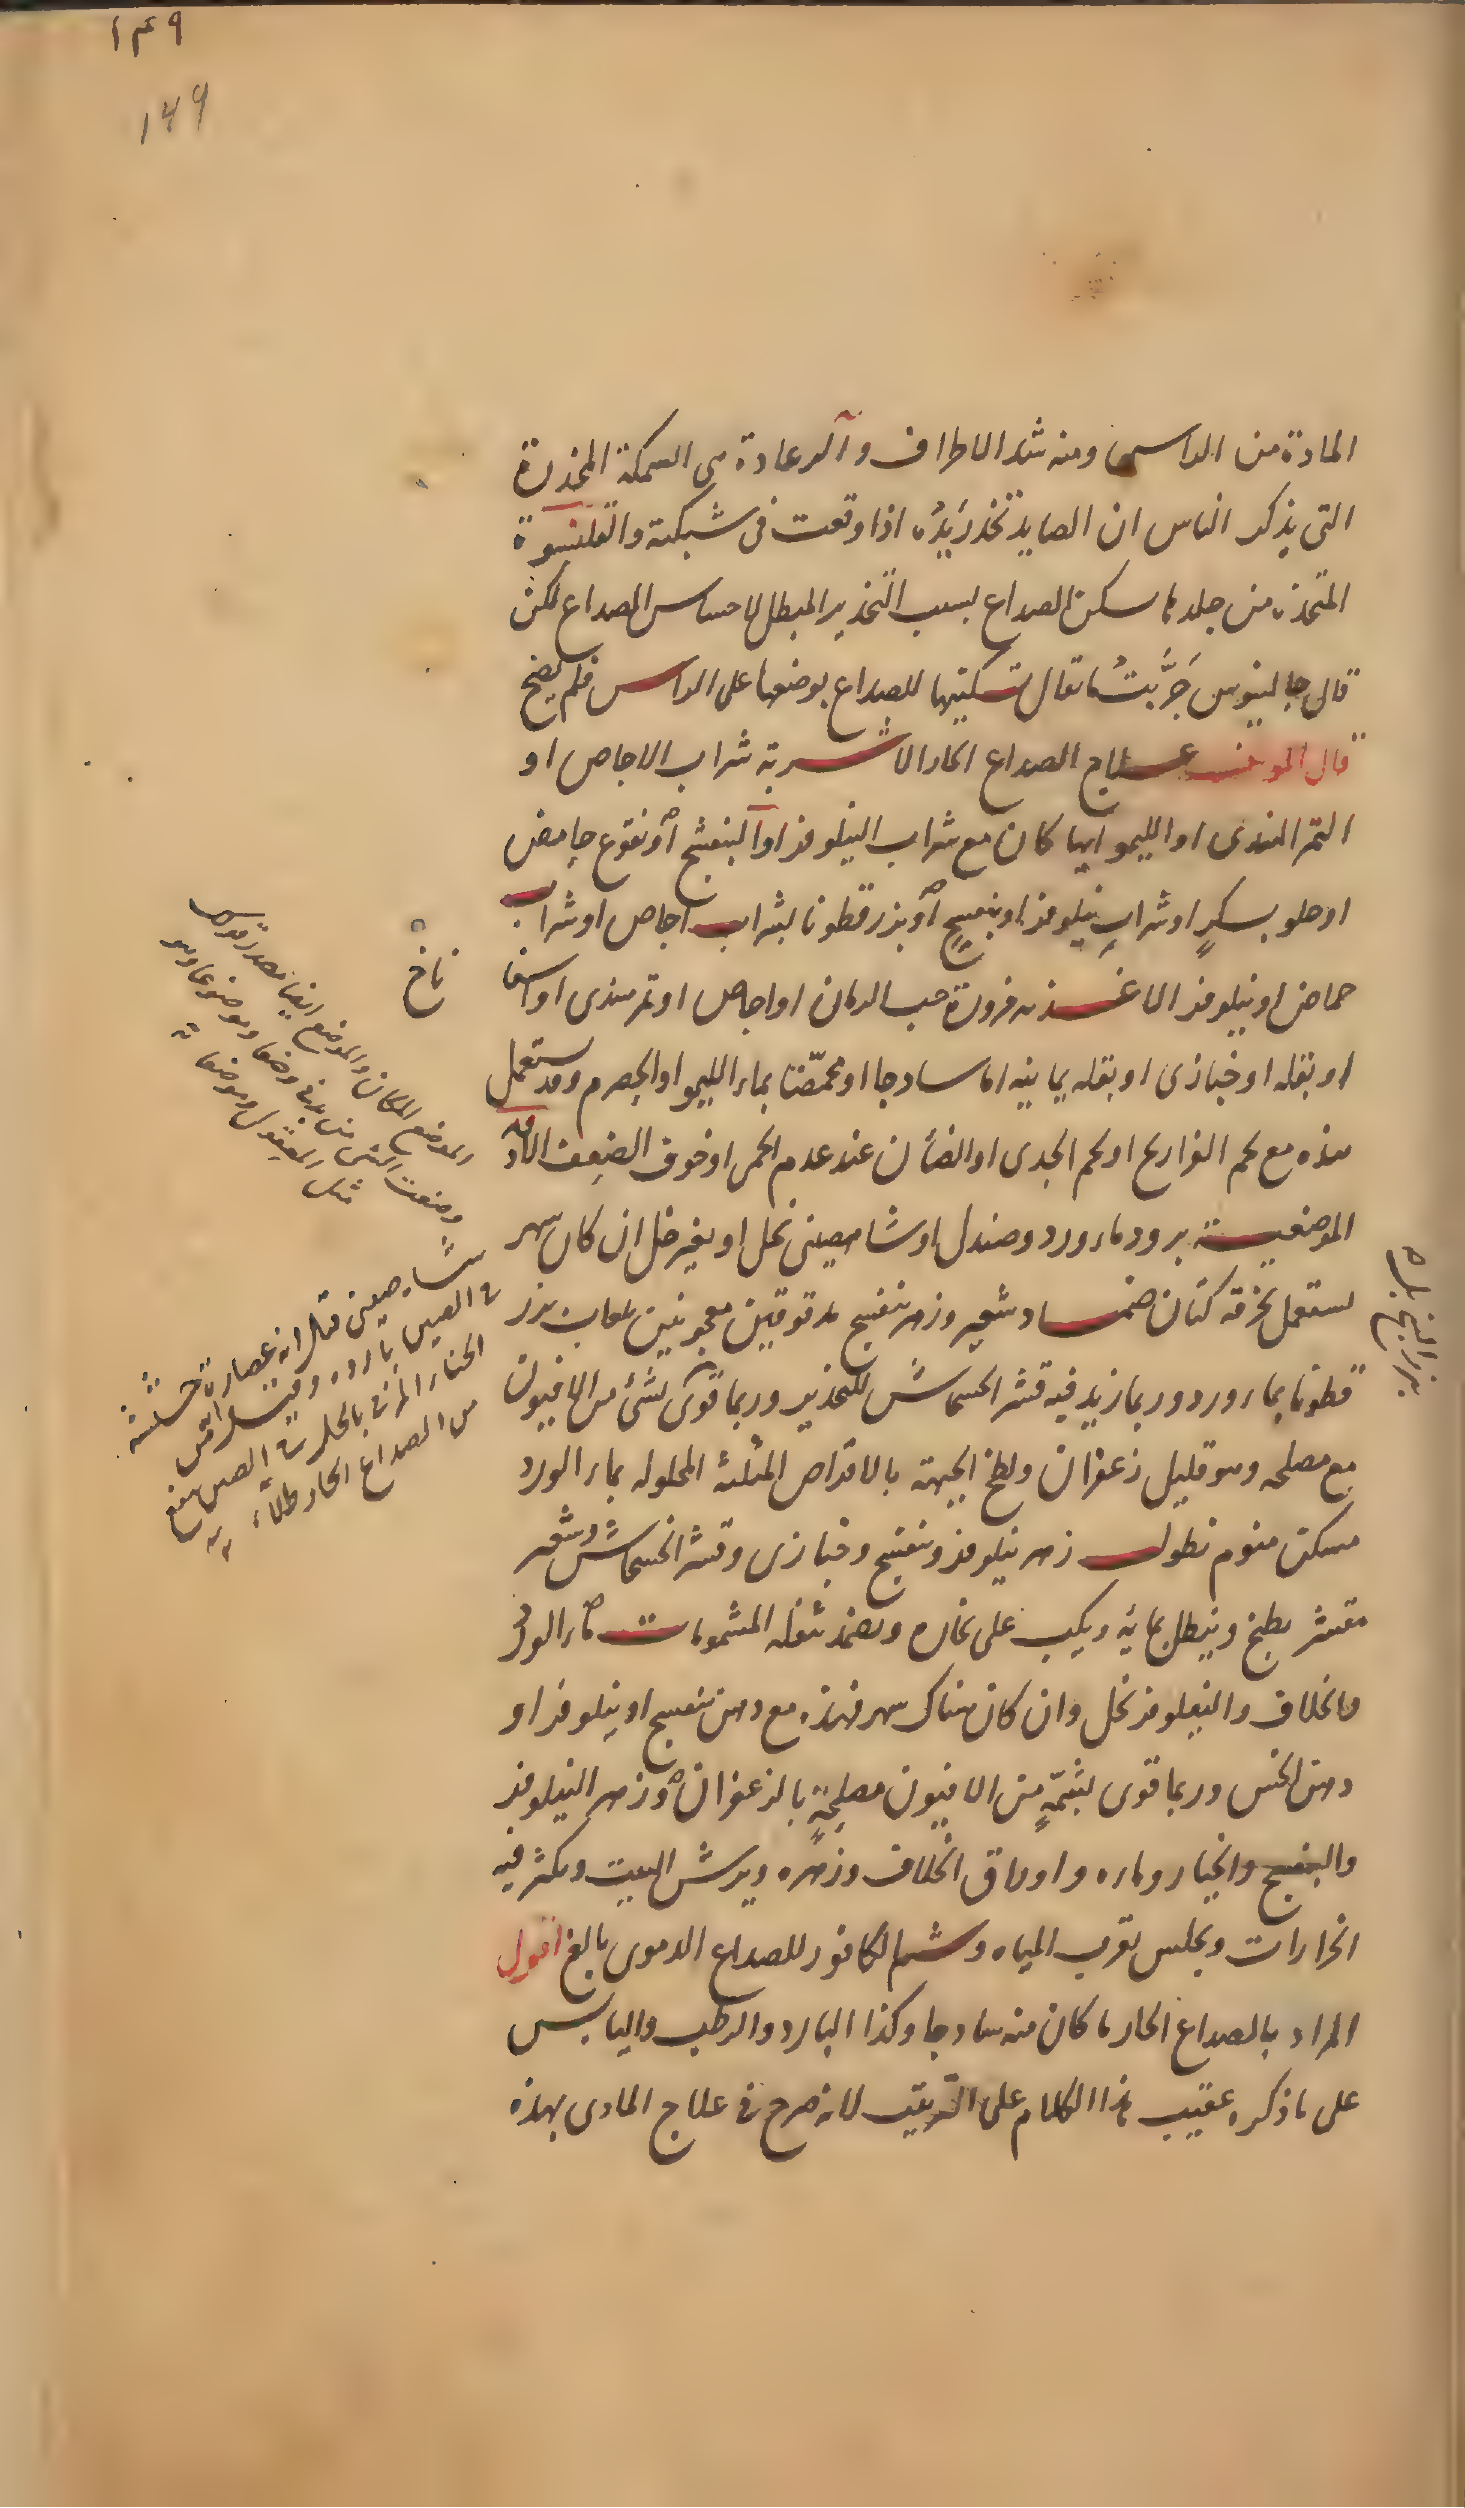 ١٤٩
149
المادة من الراس ومنه شد الاطراف والرعادة هى السمكة المخدرة
التى يذكر الناس ان الصايد تخدر يَدُه اذا وقعت فى شبكته والقلنسوة
المتخذه من جلدها سكن الصداع لسبب التخدير المبطل لاحساس الصداع لكن
قال جالينوس جَرَّبتُ ما يقال تسكينها للصداع بوضعها على الراس فلم يصح
قال المولف علاج الصداع الحار الاشربة شراب الاجاص او
التمر الهندى او الليمو ايها كان مع شراب النيلوفر او البنفسج او نقوع حامض
او حلو بسكرٍ او شرابِ نيلوفر او بنفسجٍ او بزر قطونا بشراب اجاص او شراب
حماض او نيلوفر الاغذيه مزورة حب الرمان او اجاص او تمر هندى او اسفا
ناخ
او بقله او خبازى او بقله يمانيه اما سادجا او محمّضا بماء الليمو او الحصرم وقد يستعمل
هذه مع لحم الفراريج او لحم الجدى او الضأن عند عدم الحمى او خوف الضعف الادويه
الموضعية برود ماء ورد وصندل او شا صينى بخل او بغير خل ان كان سهر
يستعمل بخرقه كتان ضماد شعير وزهر بنفسج مدقوقين معجونين بلعاب بزر
قطونا بماء ورد وربما زيد فيه قشر الخشخاش للتخدير وربما قوى بشئ من الافيون
مع مصلحه وهو قليل زعفران ولطخ الجبهة بالاقراص المثلثه المحلوله بماء الورد
مسكن منوم نطول زهر نيلوفر وبنفسج وخبازى وقشر الخشخاش وشعير
مقشر يطبخ وينطل بمائه ويكب على بخاره ويضمد بثفله المشمومات ماء الورد
والخلاف والنيلوفر بخل وان كان هناك سهر فهذه مع دهن بنفسج او نيلوفر او
دهن الخس وربما قوى بشمّةٍ من الافيون مصلحةٍ بالزعفران وزهر النيلوفر
والبنفسج والخيار وماءه واوراق الخلاف وزهره ويرش البيت ويكثر فيه
الخرارات ويجلس بقرب المياه وشم الكافور للصداع الدموى بالغ اقول
المراد بالصداع الحار ما كان منه سادجا وكذا البارد والرطب واليابس
على ما ذكره عقيب هذا الكلام على الترتيب لانه صرح فى علاج المادى بهذه
الموضع المكان والموضع ايضا مصدر قولك
وضعت الشى من يدى وضعا وموضوعا وهو
مثل المعقول وموضعا
شا صينى قيل انه عصارة حشيشة
فى الصين باردة وقيل اقراص
الحناء المربى بالخل فى الصين ينفع
من الصداع الحار طلاء
بزر البنج